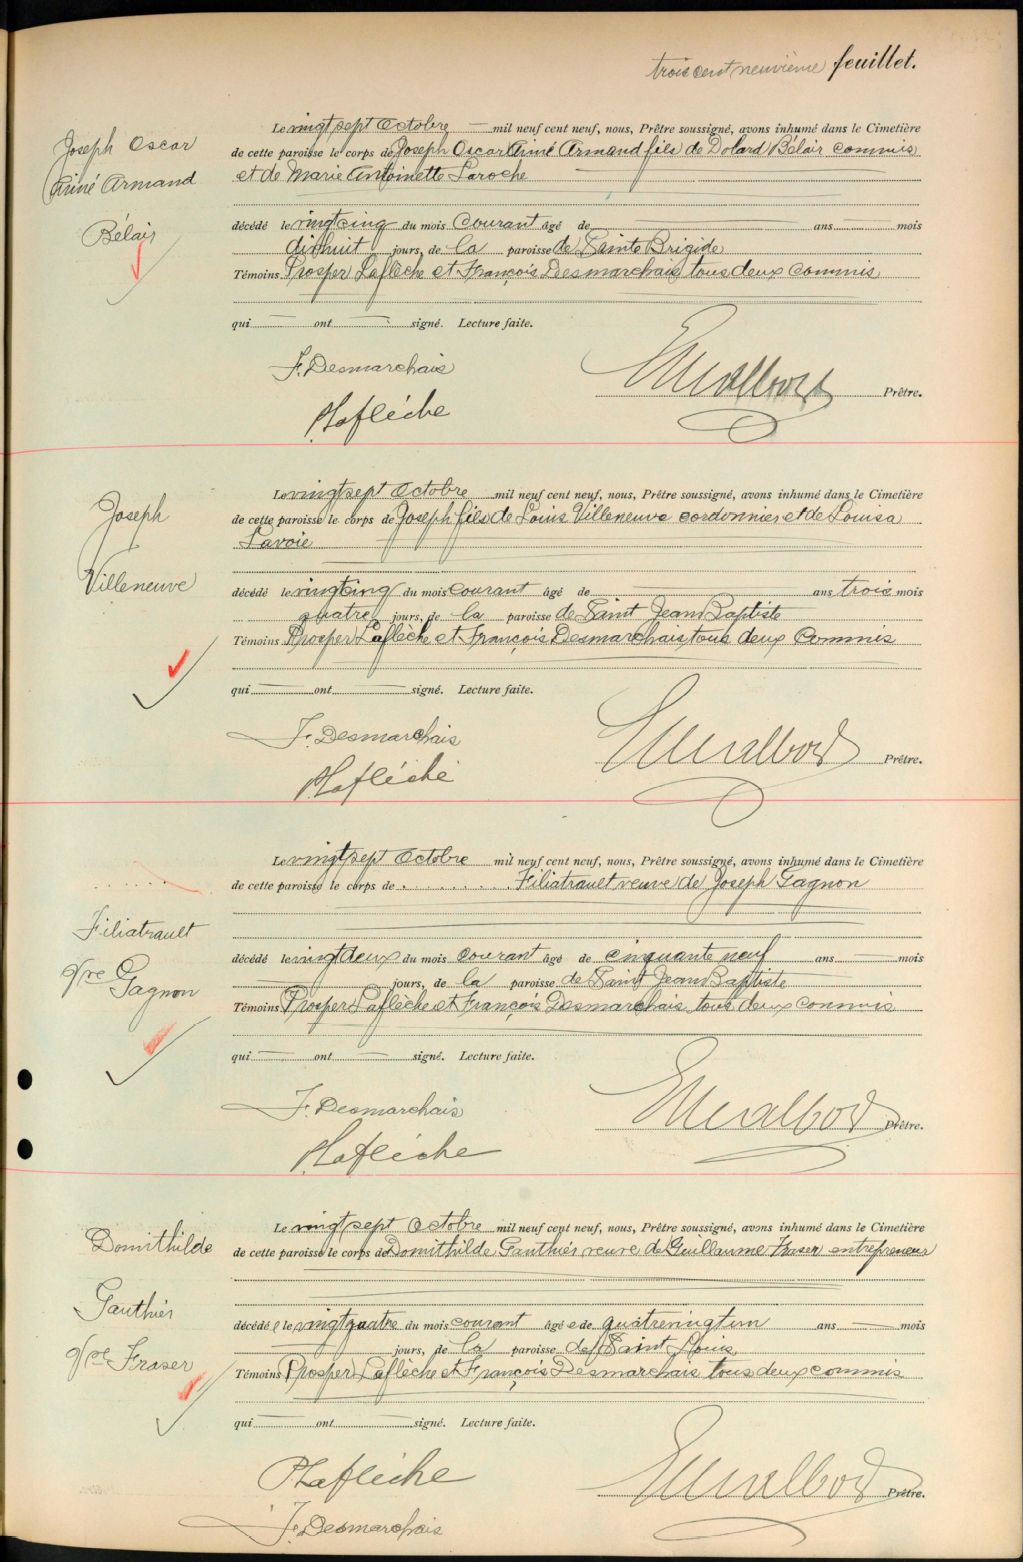 trois cent neuvième feuillet.
Joseph Oscar
Aimé Armand
Bélair
Le vingt sept Octobre — mil neuf cent neuf, nous, Prêtre soussigné, avons inhumé dans le Cimetière
de cette paroisse le corps de Joseph Oscar Aimé Armand fils de Dolard Bélair commis
et de Marie Antoinette Laroche
décédé le vingt cinq du mois courant âgé de — ans — mois
dixhuit jours, de la paroisse de Sainte Brigide
Témoins Prosper Laflèche et François Desmarchais tous deux commis
qui — ont — signé. Lecture faite.
F. Desmarchais
Prêtre.
PLaflèche
Joseph
Villeneuve
Le vingt sept Octobre mil neuf cent neuf, nous, Prêtre soussigné, avons inhumé dans le Cimetière
de cette paroisse le corps de Joseph fils de Louis Villeneuve cordonnier et de Louisa
Lavoie
décédé le vingt cinq du mois courant âgé de — ans trois mois
quatre jours, de la paroisse de Saint Jean Baptiste
Témoins Prosper Laflèche et François Desmarchais tous deux Commis
qui — ont — signé. Lecture faite.
F. Desmarchais
Prêtre.
PLaflèche
. . . . .
Filiatrault
Vve Gagnon
Le vingt sept Octobre mil neuf cent neuf, nous, Prêtre soussigné, avons inhumé dans le Cimetière
de cette paroisse le corps de . . . . . . . Filiatrault veuve de Joseph Gagnon
décédé le vingt deux du mois courant âgé de cinquante neuf ans — mois
— jours, de la paroisse de Saint Jean Baptiste
Témoins Prosper Laflèche et François Desmarchais tous deux commis
qui — ont — signé. Lecture faite.
F. Desmarchais
Prêtre.
PLaflèche
Domithilde
Gauthier
Vve Fraser
Le vingt sept Octobre mil neuf cent neuf, nous, Prêtre soussigné, avons inhumé dans le Cimetière
de cette paroisse le corps de Domithilde Gauthier veuve de Guillaume Fraser entrepreneur
décédée le vingt quatre du mois courant âgée de quatrevingt un ans — mois
— jours, de la paroisse de Saint Louis
Témoins Prosper Laflèche et François Desmarchais tous deux commis
qui — ont — signé. Lecture faite.
PLaflèche
Prêtre.
F. Desmarchais